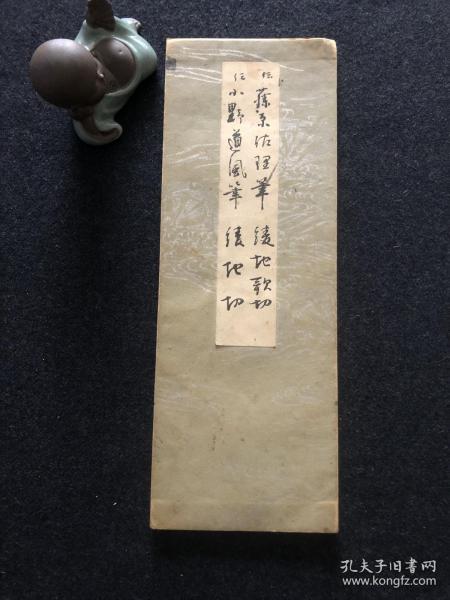 伝 藤原佐理筆 綾地歌切
伝 小野道風筆 綾地切
孔夫子旧书网
www.kongfz.com